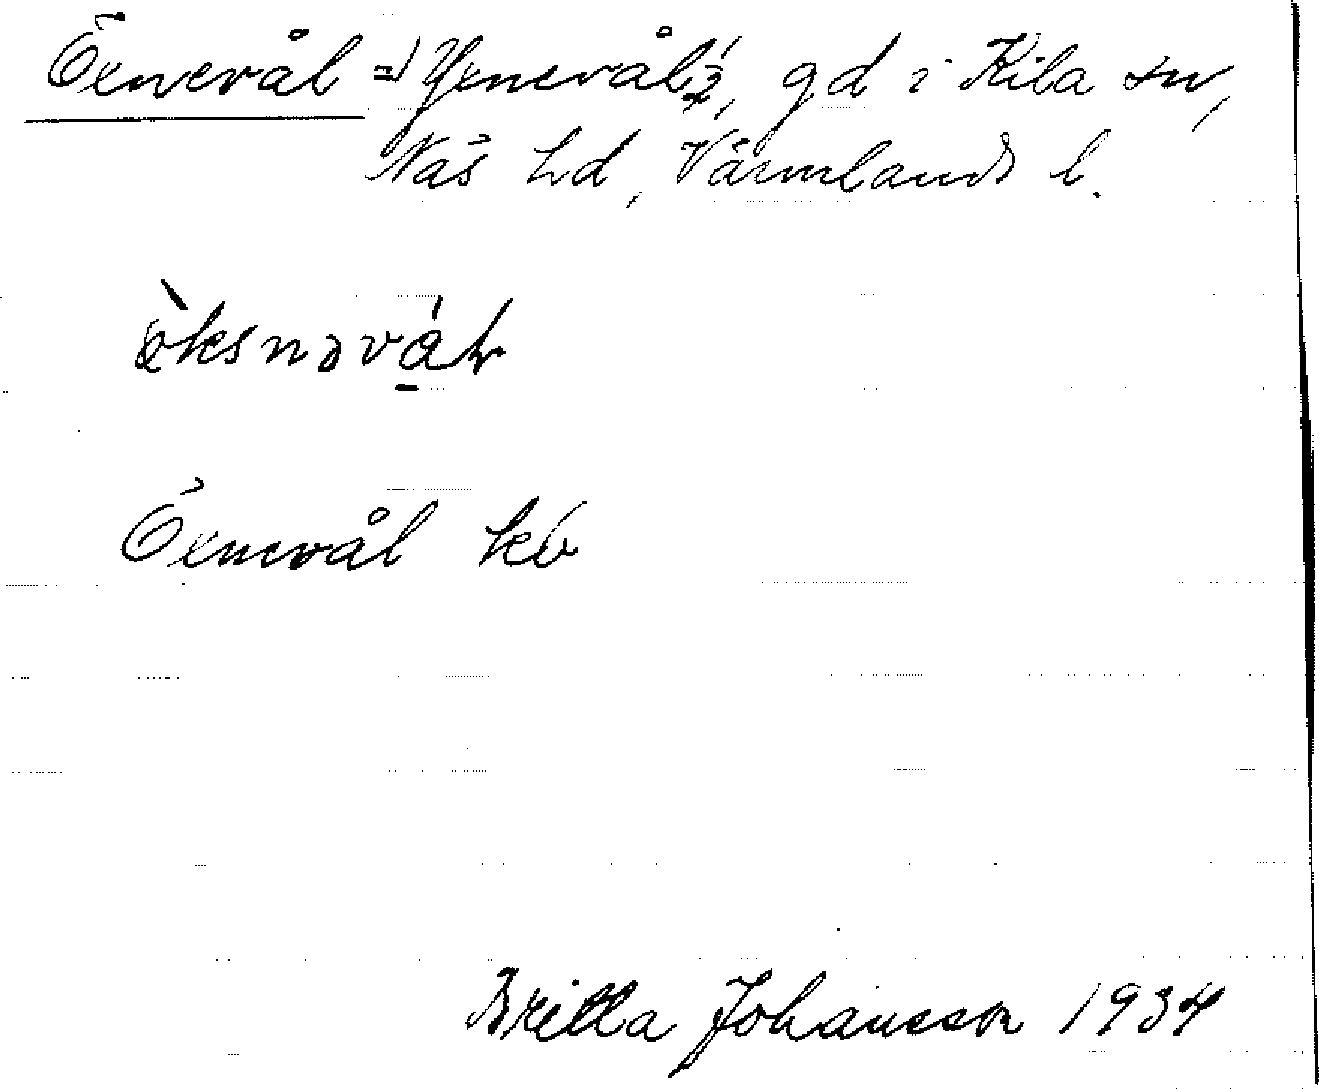 Öxnevål = Yxnevål ½, gd i Kila sn,
Näs hd, Värmlands l.
Öxnevål kb
Britta Johansson 1934